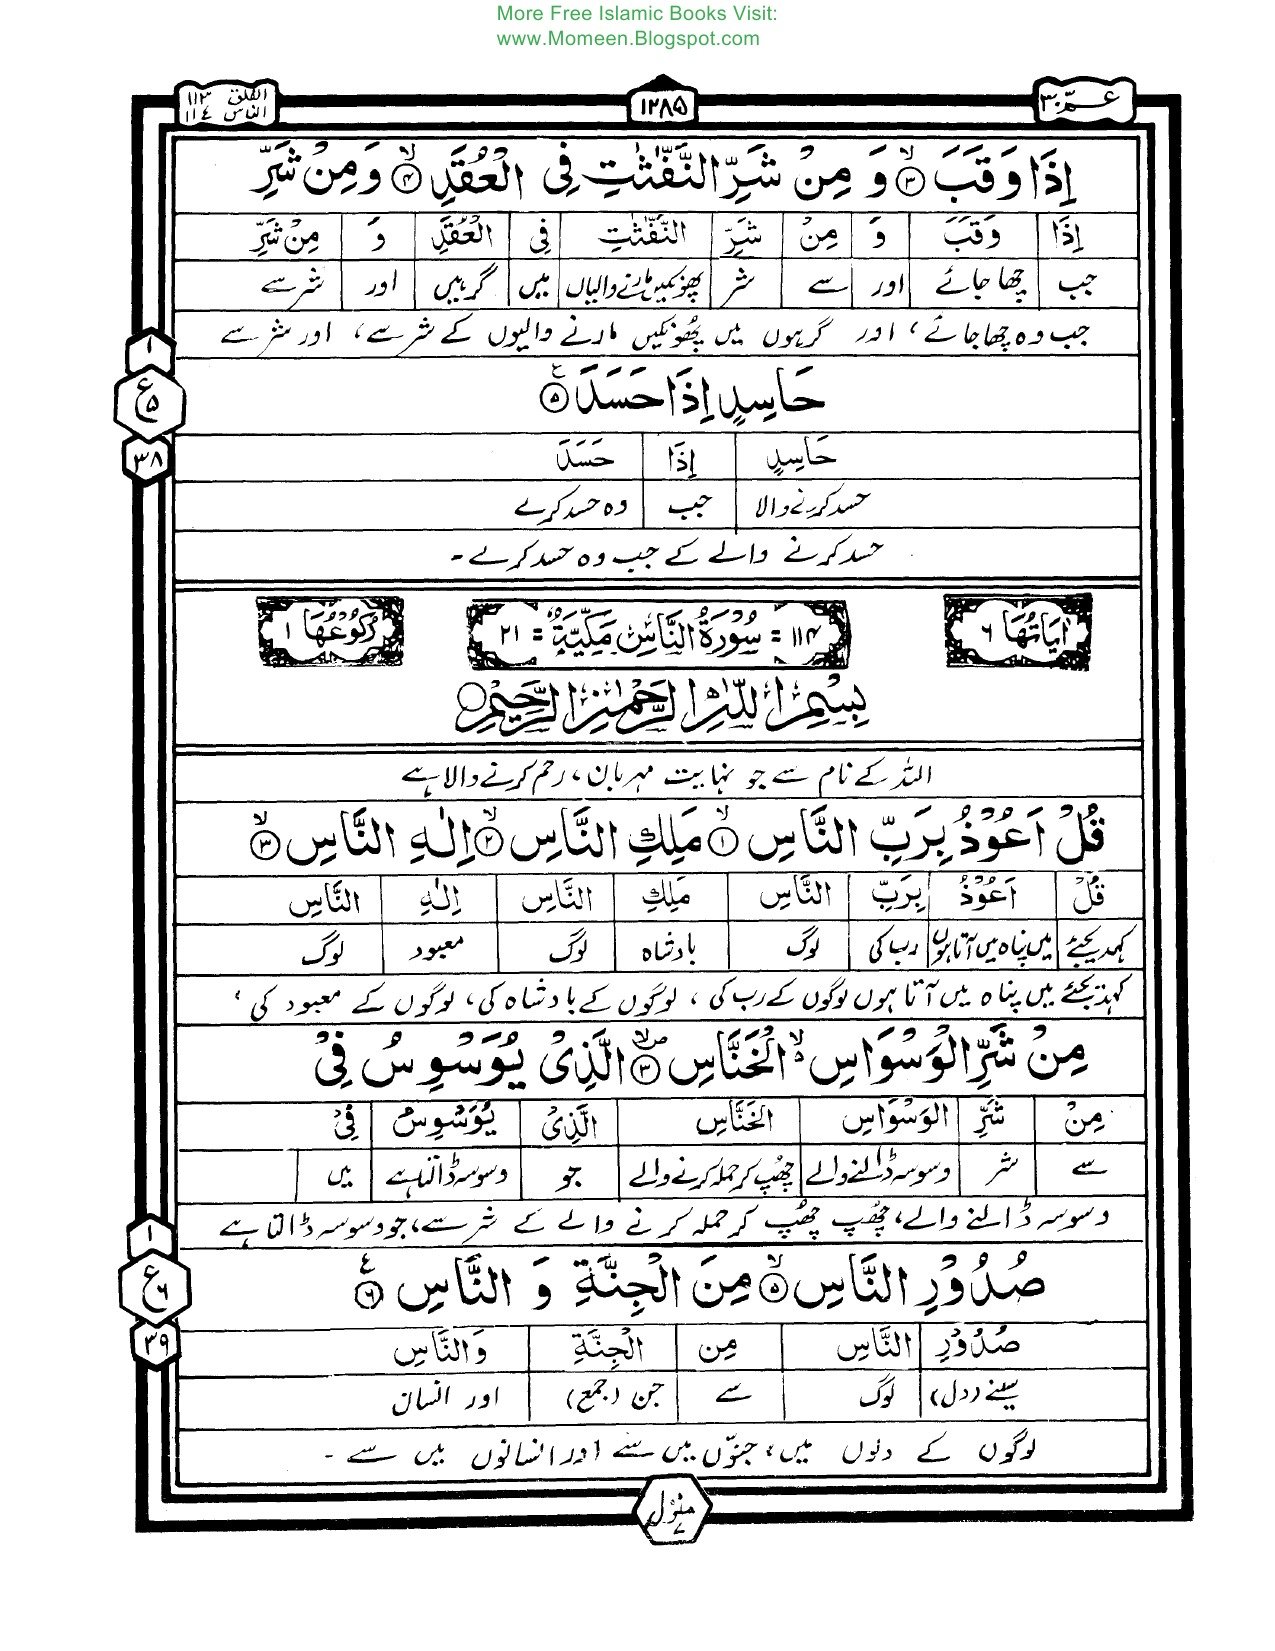 More Free Islamic Books Visit:
www.Momeen.Blogspot.com
عمّ ٣٠
١٢٨۵
الفلق ١١٣
الناس ١١٤
إِذَا وَقَبَ ۙ﴿۳﴾ وَ مِنْ شَرِّ النَّفّٰثٰتِ فِی الْعُقَدِ ۙ﴿۴﴾ وَ مِنْ شَرِّ
إِذَا وَقَبَ وَ مِنْ شَرِّ النَّفّٰثٰتِ فِی الْعُقَدِ وَ مِنْ شَرِّ
جب چھا جائے اور سے شر پھونکیں مارنے والیاں میں گرہیں اور شر سے
جب وہ چھا جائے، اور گرہوں میں پھونکیں مارنے والیوں کے شر سے، اور شر سے
١
ع
۵
٣٨
حَاسِدٍ إِذَا حَسَدَ ﴿۵﴾
حَاسِدٍ إِذَا حَسَدَ
حسد کرنے والا جب وہ حسد کرے
حسد کرنے والے کے جب وہ حسد کرے۔
اٰیَاتُهَا ٦
١١۴ = سُوْرَةُ النَّاسِ مَکِّیَّةٌ = ٢١
رُکُوْعُهَا ١
بِسْمِ اللّٰهِ الرَّحْمٰنِ الرَّحِیْمِ
اللہ کے نام سے جو نہایت مہربان، رحم کرنے والا ہے
قُلْ اَعُوْذُ بِرَبِّ النَّاسِ ۙ﴿۱﴾ مَلِكِ النَّاسِ ۙ﴿۲﴾ اِلٰهِ النَّاسِ ۙ﴿۳﴾
قُلْ اَعُوْذُ بِرَبِّ النَّاسِ مَلِكِ النَّاسِ اِلٰهِ النَّاسِ
کہدیجئے میں پناہ میں آتا ہوں رب کی لوگ بادشاہ لوگ معبود لوگ
کہدیجئے میں پناہ میں آتا ہوں لوگوں کے رب کی، لوگوں کے بادشاہ کی، لوگوں کے معبود کی،
مِنْ شَرِّ الْوَسْوَاسِ ۙ الْخَنَّاسِ ﴿۴﴾ الَّذِیْ یُوَسْوِسُ فِیْ
مِنْ شَرِّ الْوَسْوَاسِ الْخَنَّاسِ الَّذِیْ یُوَسْوِسُ فِیْ
سے شر وسوسہ ڈالنے والے چھپ کر حملہ کرنے والے جو وسوسہ ڈالتا ہے میں
وسوسہ ڈالنے والے، چھپ چھپ کر حملہ کرنے والے کے شر سے، جو وسوسہ ڈالتا ہے
١
ع
٦
٣٩
صُدُوْرِ النَّاسِ ۙ﴿۵﴾ مِنَ الْجِنَّةِ وَ النَّاسِ ﴿٦﴾
صُدُوْرِ النَّاسِ مِنَ الْجِنَّةِ وَالنَّاسِ
سینے (دل) لوگ سے جن (جمع) اور انسان
لوگوں کے دلوں میں، جنّوں میں سے اور انسانوں میں سے۔
منزل ٧